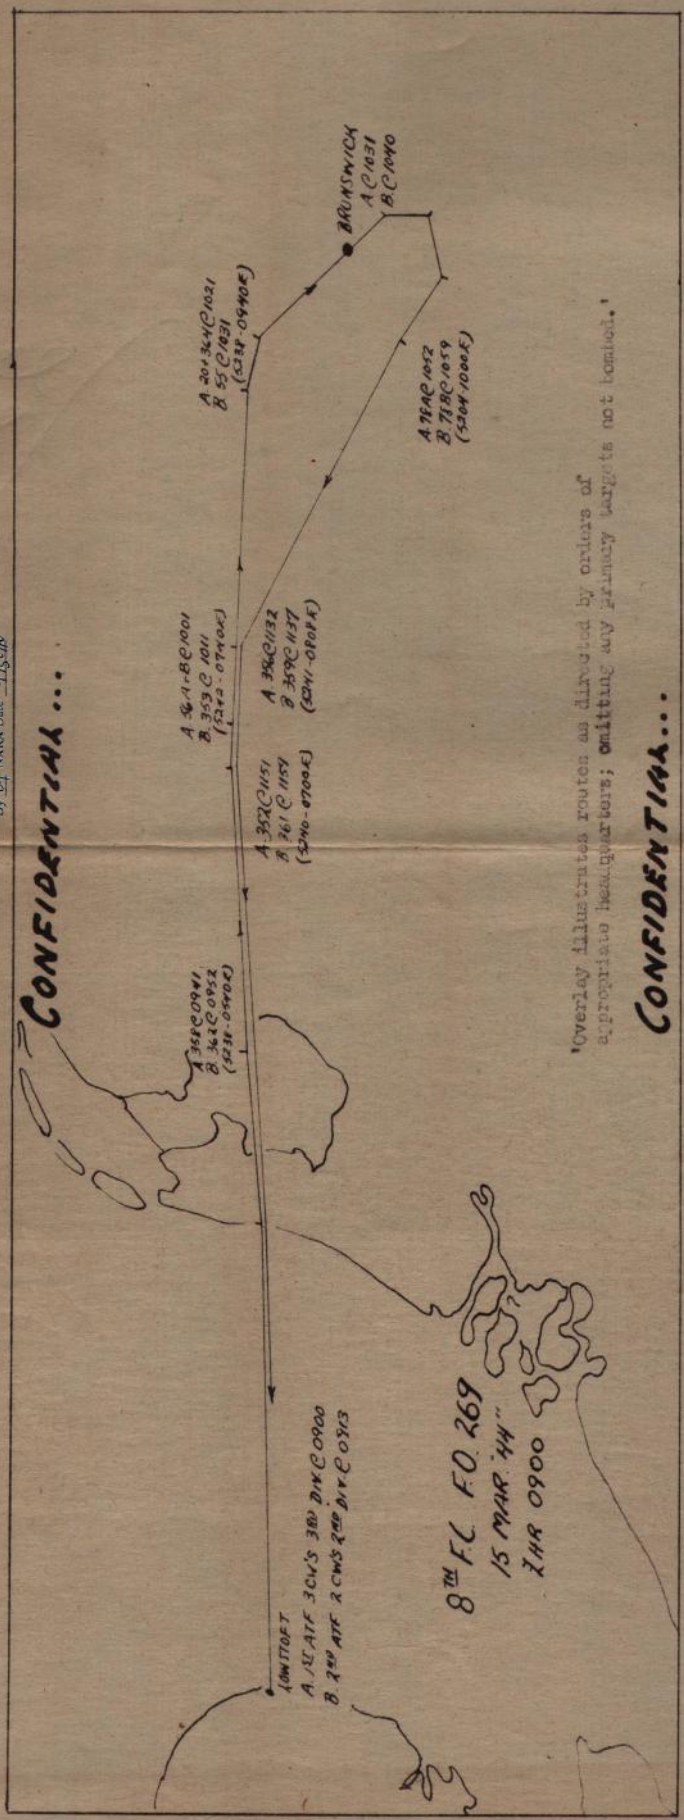 CONFIDENTIAL...
LOWSTOFT
A. 1ST ATF 3 CW'S 3RD DIV @ 0900
B. 2ND ATF 2 CW'S 2ND DIV @ 0913
A 358 @ 0941
B. 362 @ 0952
(5238-0540E)
A. 352 @ 1151
B. 361 @ 1154
(5240-0700E)
A 56A+B @ 1001
B. 353 @ 1011
(5242-0740E)
A. 356 @ 1132
B 359 @ 1137
(5241-0808E)
A. 20+364 @ 1021
B. 55 @ 1031
(5238-0940E)
BRUNSWICK
A @ 1031
B. @ 1040
A. 78A @ 1052
B. 78B @ 1059
(5204-1000E)
8TH F.C. F.O. 269
15 MAR. "44"
ZHR 0900
'Overlay illustrates routes as directed by orders of
appropriate headquarters; omitting any primary targets not bombed.'
CONFIDENTIAL...